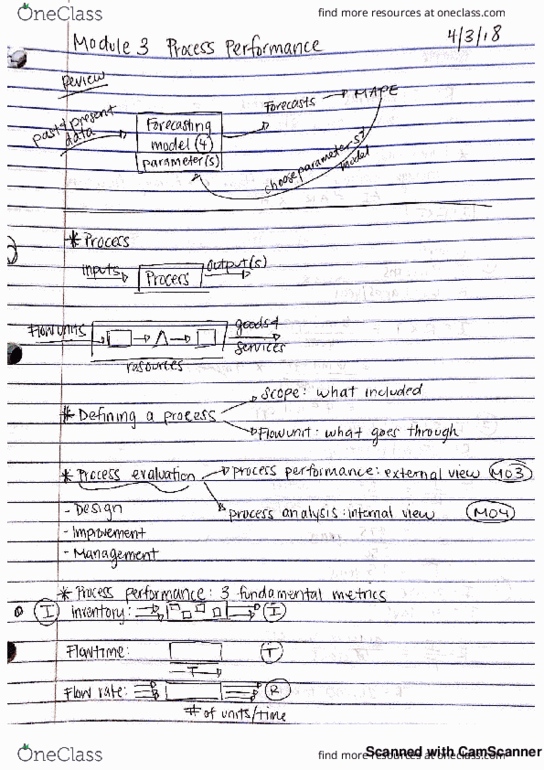 OneClass
find more resources at oneclass.com
Module 3 Process Performance
4/3/18
Review
past & present data
Forecasting model (4)
parameter(s)
Forecasts → MAPE
choose parameters? model
* Process
inputs
Process
output(s)
Flow units
goods &
services
resources
* Defining a process
scope: what included
Flow unit: what goes through
* Process evaluation
process performance: external view M03
- Design
process analysis: internal view M04
- Improvement
- Management
* Process performance: 3 fundamental metrics
I Inventory: I
Flow time: T
T
Flow rate: R
# of units/time
OneClass
find more resources at oneclass.com
Scanned with CamScanner